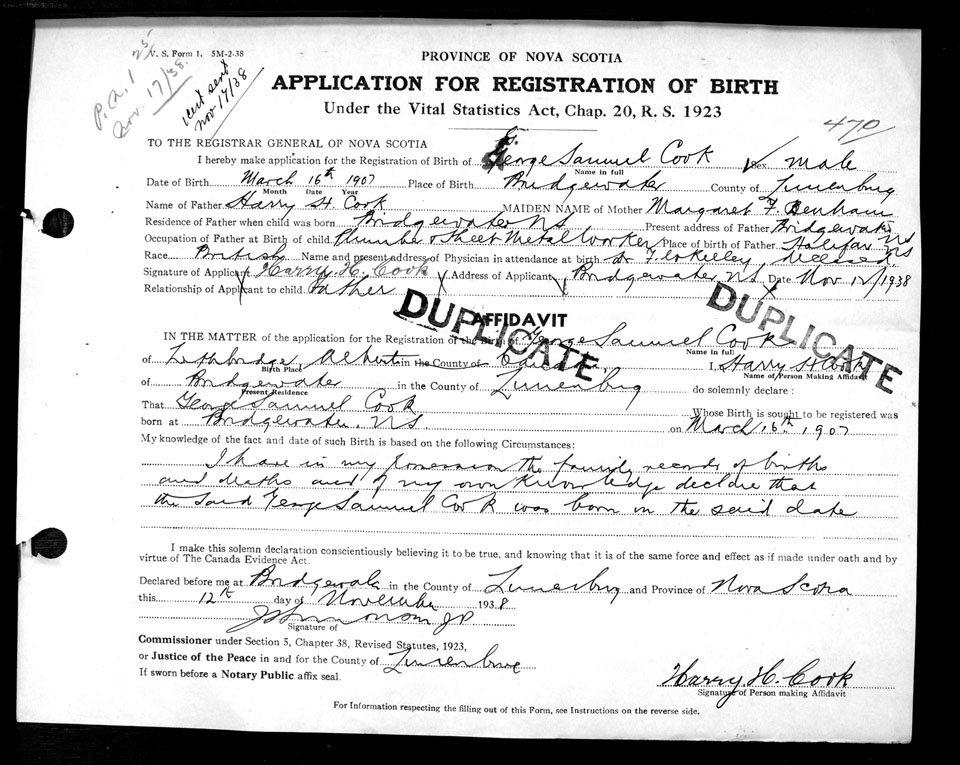 V. S. Form 1. 5M-2-38
25
P. a. 1
Nov. 17/38.
1 cert sent
Nov 17/38
PROVINCE OF NOVA SCOTIA
APPLICATION FOR REGISTRATION OF BIRTH
Under the Vital Statistics Act, Chap. 20, R. S. 1923
470
TO THE REGISTRAR GENERAL OF NOVA SCOTIA
I hereby make application for the Registration of Birth of George Samuel Cook Sex male
Name in full
Date of Birth March 16th 1907 Place of Birth Bridgewater County of Lunenburg
Month Date Year
Name of Father Harry H. Cook MAIDEN NAME of Mother Margaret F. Denham
Residence of Father when child was born Bridgewater NS Present address of Father Bridgewater NS
Occupation of Father at Birth of child Plumber & Sheet Metal Worker Place of birth of Father Halifax NS
Race British Name and present address of Physician in attendance at birth Dr deceased
Signature of Applicant Harry H. Cook Address of Applicant Bridgewater, NS Date Nov 12/1938
Relationship of Applicant to child Father
DUPLICATE
DUPLICATE
AFFIDAVIT
IN THE MATTER of the application for the Registration of the Birth of George Samuel Cook
Name in full
of Lethbridge Alberta in the County of I, Harry H Cook
Birth Place Name of Person Making Affidavit
of Bridgewater in the County of Lunenburg do solemnly declare :
Present Residence
That George Samuel Cook Whose Birth is sought to be registered was
born at Bridgewater, NS on March 16th 1907
My knowledge of the fact and date of such Birth is based on the following Circumstances:
I have in my possession the family records of births
and deaths and of my own knowledge declare that
the said George Samuel Cook was born on the said date
I make this solemn declaration conscientiously believing it to be true, and knowing that it is of the same force and effect as if made under oath and by
virtue of The Canada Evidence Act.
Declared before me at Bridgewater in the County of Lunenburg and Province of Nova Scotia
this 12th day of November 1938
JP
Signature of
Commissioner under Section 5, Chapter 38, Revised Statutes, 1923,
or Justice of the Peace in and for the County of Lunenburg
If sworn before a Notary Public affix seal.
Harry H. Cook
Signature of Person making Affidavit
For Information respecting the filling out of this Form, see Instructions on the reverse side.